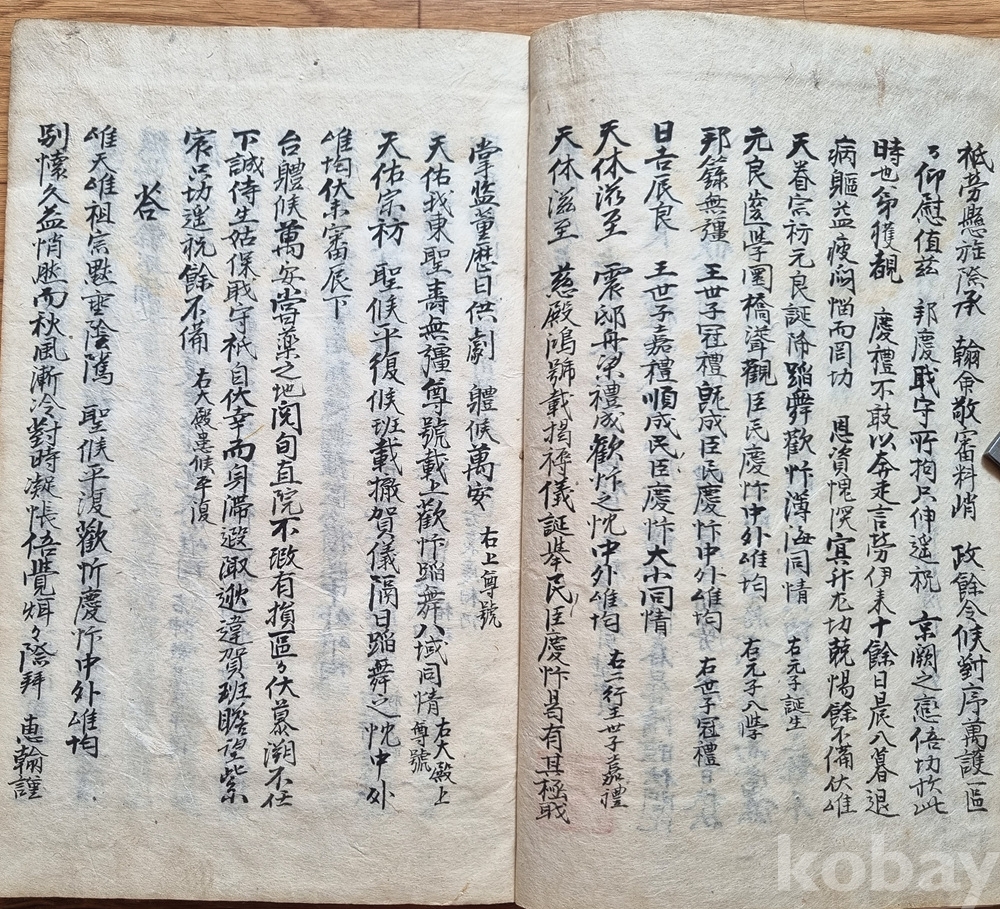 柢勞懸旌際承 翰命敬審料峭 政餘令候對序萬護區
〻仰慰值玆 邦慶職守所拘只伸遙祝 京闕之戀倍切於此
時也弟獲覩 慶禮不敢以奔走言勞伊來十餘日晨入暮退
病軀益疲悶惱而罔功 恩資愧悚冥升尤切兢惕餘不備伏惟
天眷宗祊元良誕降蹈舞歡忭薄海同情 右元子誕生
元良受學圜橋聳觀臣民慶忭中外惟均 右元子入學
邦籙無彊 王世子冠禮旣成臣民慶忭中外惟均 右世子冠禮
日吉辰良 王世子嘉禮順成民臣慶忭大小同情
天休滋至 震邸舟梁禮成歡忭之忱中外惟均 右二行王世子嘉禮
天休滋至 慈殿鴻號載揭縟儀誕擧民臣慶忭曷有其極職
掌監董歷日供劇 體候萬安 右上尊號
天佑我東聖壽無彊尊號載上歡忭蹈舞八域同情 右大殿上尊號
天佑宗祊 聖候平復候班載撤賀儀隔日蹈舞之忱中外
惟均伏未審辰下
台體候萬安嘗藥之地閱旬直院不瑕有損區〻伏慕溯不任
下誠侍生姑保職守祇自伏幸而身滯遐陬逖違賀班瞻望紫
宸只切遙祝餘不備 右大殿患候平復
答
惟天惟祖宗默垂陰隲 聖候平復歡忻慶忭中外惟均
別懷久益悄然而秋風漸冷對時凝悵倍覺烟〻際拜 惠翰謹
kobay